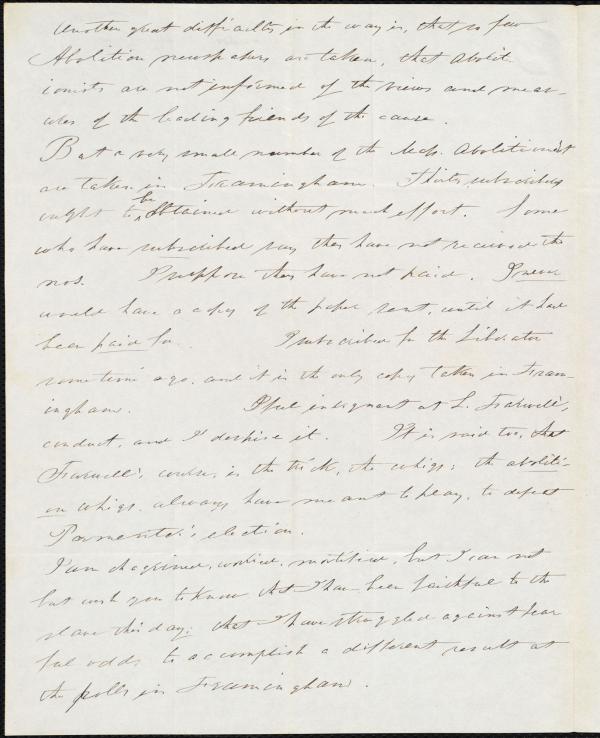 Another great difficulty in the way is, that so few
Abolition newspapers are taken, that Abolit-
ionists are not informed of the views and meas-
ures of the leading friends of the cause.
But a very small number of the Mass. Abolitionist
are taken in Framingham. Thirty subscribers
ought to be obtained without much effort. Some
who have subscribed say they have not received the
nos. I suppose they have not paid. I never
would have a copy of the paper sent, until it had
been paid for. I subscribed for the Liberator
sometime ago, and it is the only copy taken in Fram-
ingham. I feel indignant at L. Farwell's,
conduct, and I despise it. It is said too, that
Farwell's, course, is the trick, the whigs; the aboliti-
on whigs, always have meant to play, to defeat
Parmenter's election.
I am chagrined, worried, mortified, but I can not
but wish you to know that I have been faithful to the
slave this day; that I have struggled against fear
ful odds to accomplish a different result at
the polls in Framingham.